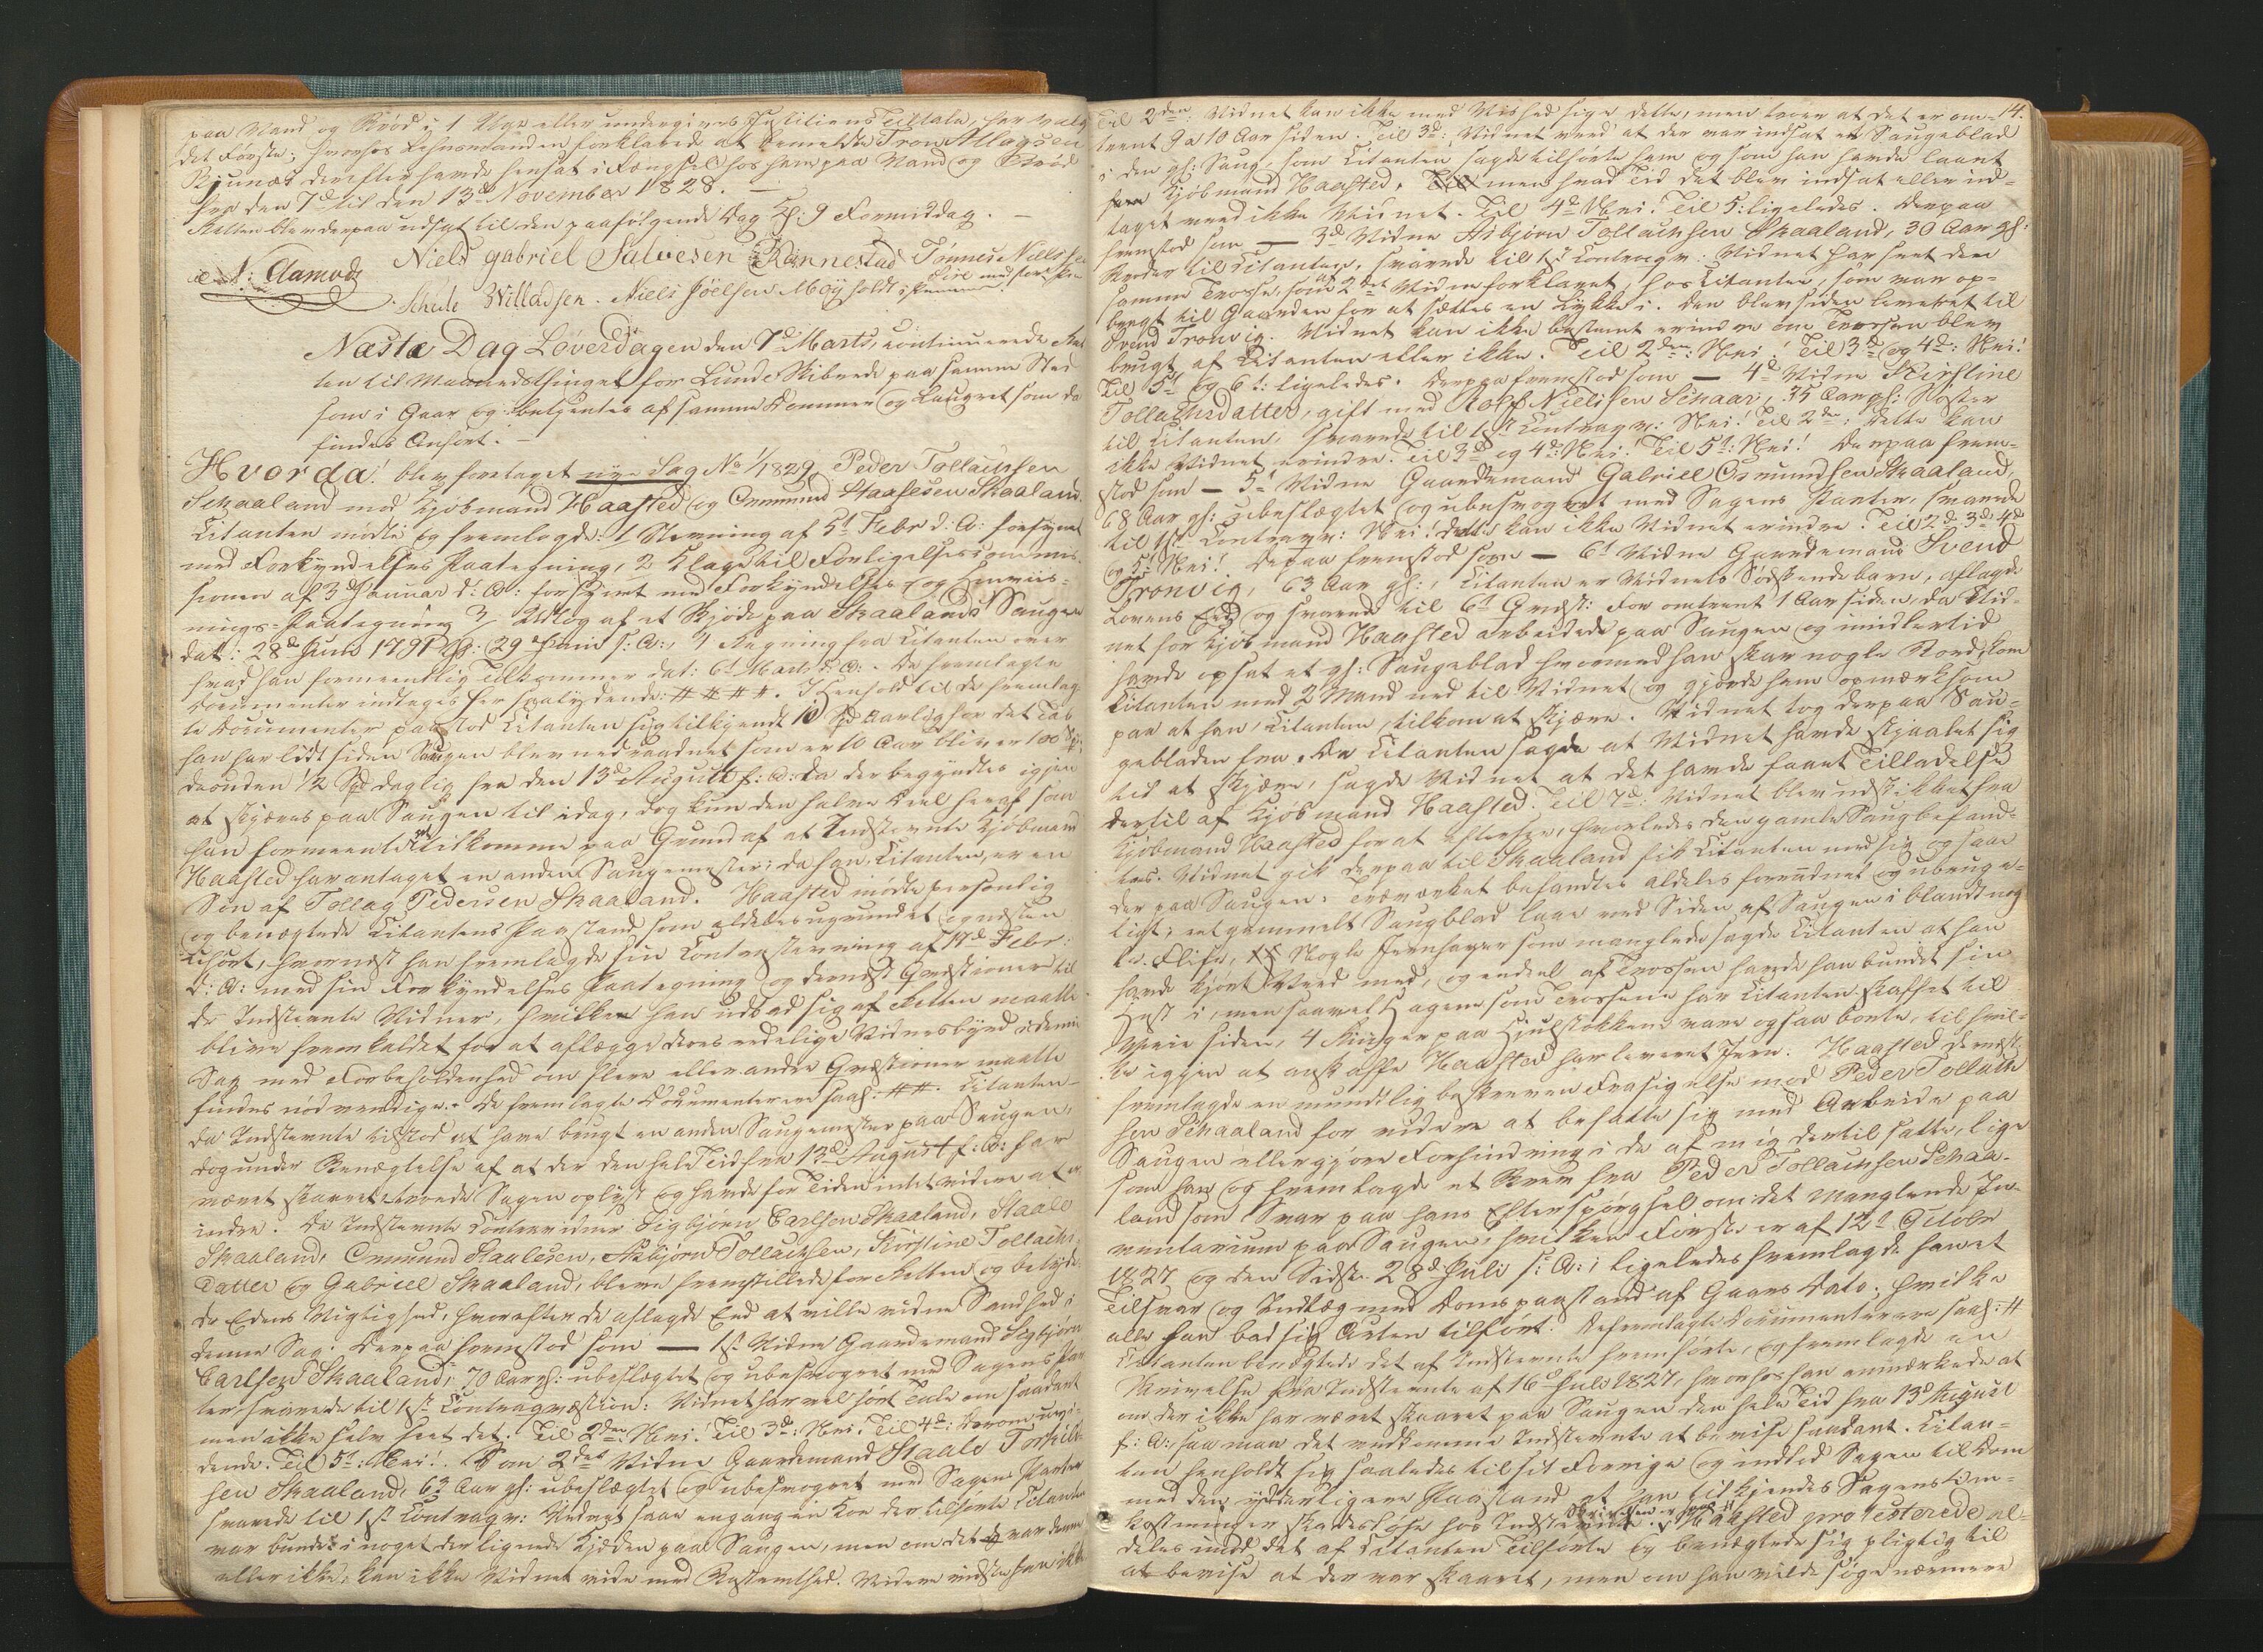 paa Vand og Brød i 1 Uge eller undergives Justitiens Tiltale, har valgt
det Første; hvorhos Lehnsmanden forklarede at bemeldte Tron Allagsen
Bjunæs derefter havde hensat i Fængsel hos ham paa Vand og Brød
fra den 7d til den 13de November 1828. —
Retten blev derpaa udsat til den paafølgende Dag Kl: 9 Formiddag. —
N: Aamodt Niels Gabriel Salvesen Rannestad Tönnes Nielssen
Eire med paaholden
Villadsen. Niels Joelsen Moÿ holdt i Pennen.
Næste Dag Løverdagen den 7d Marts, continuerede Ret
ten til Maanedsthinget for Lunde Skibrede paa samme Sted
som i Gaar og betjentes af samme Dommer og Laugret som da
findes Anført. —
Hvorda! blev foretaget nye Sag No 1/1829, Peder Tollachsen
Schaaland mod Kjøbmand Haasted og Ommund Staalesen Skaaland.
Citanten mødte og fremlagde: 1 Stevning af 5t Febr d: A: forsynet
med Forkyndelses Paategning, 2 Klage til Forligelsescommis-
sionen af 3d Januar d: A: forsynet med Forkyndelses og Henviis-
nings-Paategning 3, Udtog af et Skjøde paa Skaalands Saugen
dat: 28de Juni 1791 29de Juni s: A:, 4 Regning fra Citanten over
hvad han formeentlig Tilkommer dat: 6t Marts d: A: . De fremlagte
Documenter indtages her saalydende: ####. I Henhold til de fremlag-
te Documenter paastod Citanten sig tilkjendt 10 Spd aarlig for det Tab
han har lidt siden Saugen blev nedraadnet som er 10 Aar bliver 100 Spd
desuden 1/2 Spd daglig fra den 13de August f: A: da der begyndtes igjen
at skjæres paa Saugen til idag, dog kun den halve Deel heraf som
han formeente at tilkomme paa Grund af at Indstevnte Kjøbmand
Haasted har antaget en anden Saugemester, da han, Citanten, er en
Søn af Tollag Pedersen Skaaland. Haasted mødte personlig
og benegtede Citantens Paastand som aldeles ugrundet og
uhørt, hvornæst han fremlagde sin Contrastevning af 17de Febr:
d: A: med sin Forkyndelses Paategning og dernæst Qvæstioner til
de Indstevnte Vidner, hvilken han udbad sig af Retten maatte
blive fremkaldet for at aflægge deres edelige Vidnesbyrd i denne
Sag med Forbeholdenhed om flere eller andre Qvæstioner maatte
findes nødvendige. De fremlagte Documenter ere saal: ##. Citanten
da Indstevnte tilstod at have brugt en anden Saugemester paa Saugen,
dog under Benegtelse af at der den hele Tid fra 13de August f: A: har
været skaaret, troede Sagen oplyst og havde for Tiden intet videre at er-
indre. De Indstevnte Contravidner Sigbjørn Carlsen Skaaland, Staale
Skaaland, Ommund Staalesen, Asbjørn Tollachsen, Kirstine Tollachs-
datter og Gabriel Skaaland, bleve fremstillede for Retten og betyde-
de Edens Vigtighed, hvorefter de aflagde Eed at ville vidne Sandhed i
denne Sag. Derpaa fremstod som — 1ste Vidne Gaardemand Sigbjørn
Carlsen Skaaland, 70 Aar gl: ubeslægtet og ubesvogret med Sagens Par
ter, svarede til 1ste Contraqvæstion: Vidnet har vel hørt Tale om saadant
men ikke selv seet det. Til 2den: Nei. Til 3de: Nei. Til 4de: Derom uvi-
dende. Til 5t: Nei! Som 2det Vidne Gaardemand Staale Torkild-
sen Skaaland, 63 Aar gl: ubeslægtet og ubesvogret med Sagens Parter
svarede til 1ste Contraqv: Vidnet saae engang en Koe der tilhørte Citanten
var bunden i noget der lignede Kjæden paa Saugen, men om det var denne
eller ikke, kan ikke Vidnet vide med Bestemthed. Videre vidste han ikke
14.
Til 2den: Vidnet kan ikke med Vished sige dette, men troer at det er om-
trent 9 a 10 Aar siden. Til 3d: Vidnet veed at der var indsat et Saugeblad
i den gl: Saug, som Citanten sagde tilhørte ham og som han havde laant
Kjøbmand Haasted, men hvad Tid det blev indsat eller ud-
taget veed ikke Vidnet. Til 4de Nei! Til 5: ligeledes. Derpaa
fremstod som — 3de Vidne Asbjørn Tollachsen Skaaland, 30 Aar gl:
Broder til Citanten, svarede til 1ste Contraqv: Vidnet har seet den
samme Trosse, som af 2det Vidne forklaret, hos Citanten, som var op-
bragt til Gaarden for at sættes en Løkke i. Den blev siden leveret til
Svend Tronvig. Vidnet kan ikke bestemt erindre om Trossen blev
brugt af Citanten eller ikke. Til 2den: Nei! Til 3de og 4de: Nei!
Til 5te og 6t: ligeledes. Derpaa fremstod som — 4de Vidne Kirstine
Tollachsdatter, gift med Rolf Nielsen Schaar, 35 Aar gl: Søster
til Citanten, svarede til 1ste Contraqv: Nei! Til 2de: dette kan
ikke Vidnet erindre. Til 3de og 4de: Nei! Til 5t: Nei! Derpaa frem-
stod som — 5t Vidne Gaardemand Gabriel Osmundsen Skaaland,
68 Aar gl: ubeslægtet og ubesvogret med Sagens Parter, svarede
til 1ste Contraqv: Nei! dette kan ikke Vidnet erindre. Til 2de 3de 4de
og 5t: Nei! Derpaa fremstod som — 6t Vidne Gaardemand Svend
Tronvig, 63 Aar gl:, Citanten er Vidnets Sødskendebarn, aflagde
Lovens Eed og svarede til 6t Qvæst: For omtrent 1 Aar siden, da Vid-
net for Kjøbmand Haasted arbeidede paa Saugen og imidlertid
havde opsat et gl: Saugeblad hvormed han skar nogle Bord, kom
Citanten med 2 Mand ned til Vidnet og gjorde ham opmærksom
paa at han, Citanten, tilkom at skjære. Vidnet tog derpaa Sau-
gebladen fra. Da Citanten sagde at Vidnet havde stjaalet sig
til at skjære, sagde Vidnet at det havde faaet Tilladelse
dertil af Kjøbmand Haasted. Til 7d: Vidnet blev udskikket fra
Kjøbmand Haasted for at eftersee, hvorledes den gamle Saug befand-
tes. Vidnet gik derpaa til Skaaland fik Citanten med sig og saae
der paa Saugen. Træværket befandtes aldeles forraadnet og ubruge-
ligt; et gammelt Saugblad laae ved Siden af Saugen i blandt nog-
le Flise, Nogle Jernhager som manglede sagde Citanten at han
havde kjørt Veed med, og endeel af Trossen havde han bundet sin
Hest i, men saavel Hagene som Trossene har Citanten skaffet til
Veie siden, 4 Ringer paa Hjulstokken vare ogsaa borte, til hvil-
ke igjen at anskaffe Haasted har leveret Jern. Haasted dernæst
fremlagde en mundtlig beskreven Frasigelse mod Peder Tollach-
sen Schaaland for videre at befatte sig med Arbeide paa
Saugen eller gjøre Forhindring i de af mig dertil satte, lige
som han og fremlagde et Brev fra Peder Tollachsen Schaa-
land som Svar paa hans Efterspørgsel om det manglende In-
ventarium paa Saugen, hvilken Første er af 12t October
1827 og den Sidste 28d Juli s: A: ligeledes fremlagde han et
Tilsvar og Indlæg med Doms paastand af Gaars Dato; hvilke
alle han bad sig Acten tilført. De fremlagte Documenter ere saal: #
Citanten benegtede det af Indstevnte fremførte, og fremlagde en
Skrivelse fra Indstevnte af 16de Juli 1827, hvorhos han anmærkede at
om der ikke har været skaaret paa Saugen den hele Tid fra 13d August
f: A:, saa maa det vedkomme Indstevnte at bevise saadant. Citan-
ten henholdt sig saaledes til sit Forrige og indlod Sagen til Dom
med den yderligere Paastand at han tilkjendes Sagens Om-
kostninger skadesløse hos Indstevnte. Skrivelsen er saal: # Haasted protesterede al-
deles mod det af Citanten Tilførte og benegtede sig pligtig til
at bevise at der var skaaret, men om han vilde søge nærmere